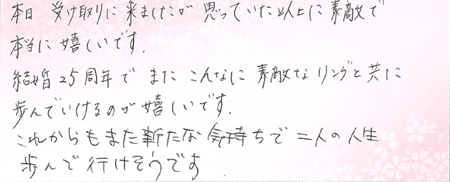 本日 受け取りに来ましたが 思っていた以上に素敵で
本当に嬉しいです.
結婚25周年で またこんなに素敵なリングと共に
歩んでいけるのが嬉しいです.
これからもまた新たな気持ちで二人の人生
歩んで行けそうです